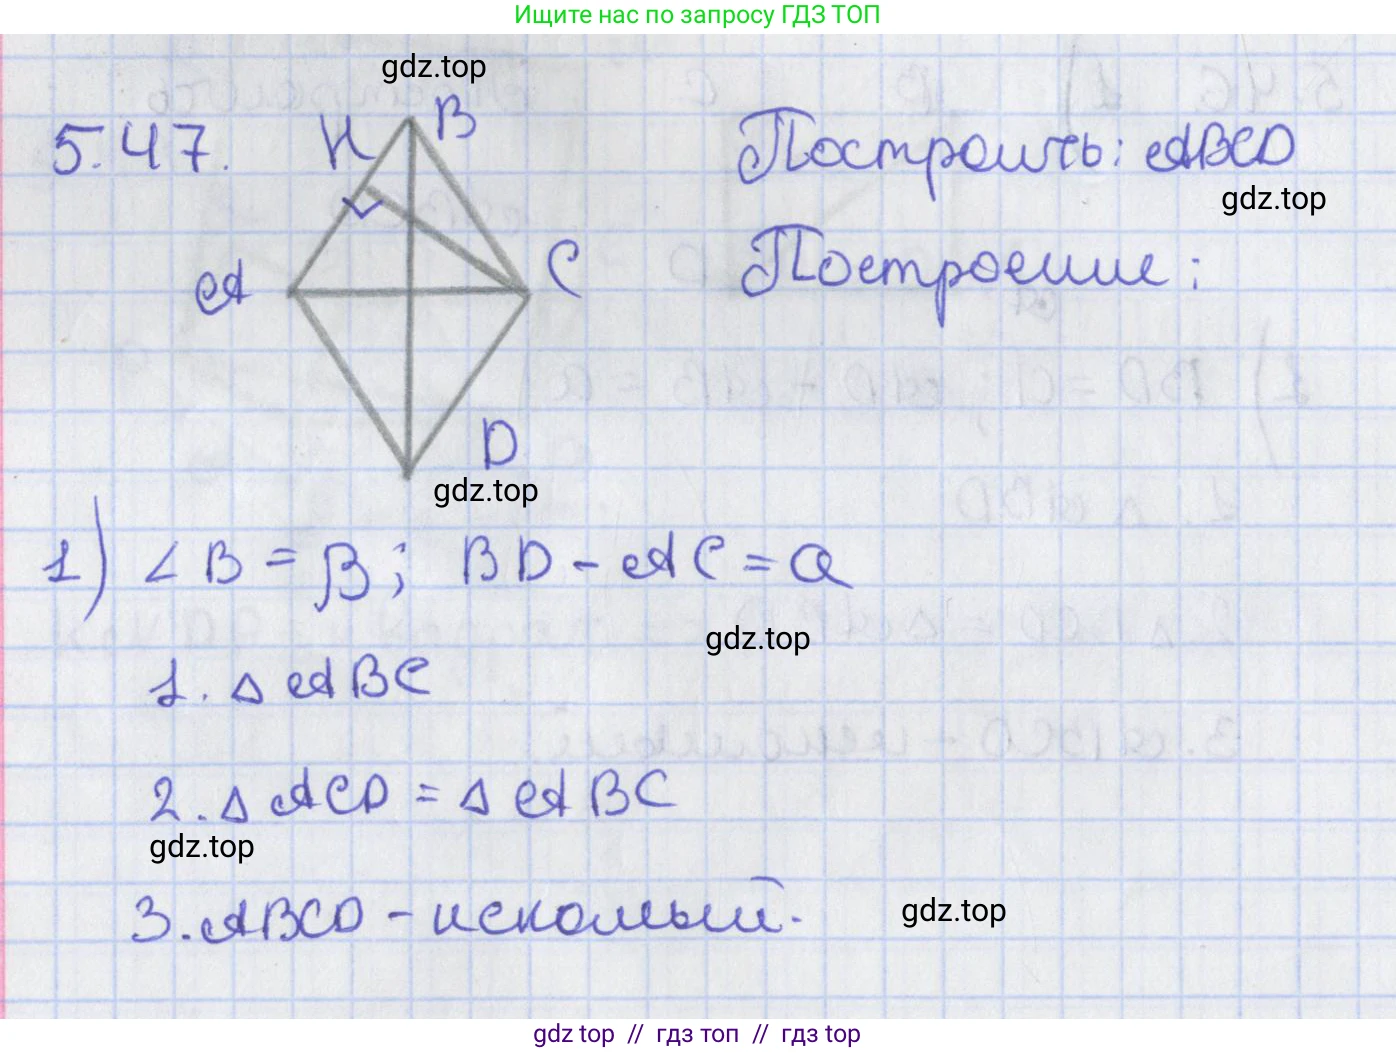 Ищите нас по запросу ГДЗ ТОП
gdz.top
5.47.
H
B
Построить: ABCD
gdz.top
A
C
Построение:
D
gdz.top
1) ∠B = β; BD - AC = a
gdz.top
1. △ ABC
2. △ ACD = △ ABC
gdz.top
3. ABCD - искомый.
gdz.top
gdz top // гдз топ // гдз top